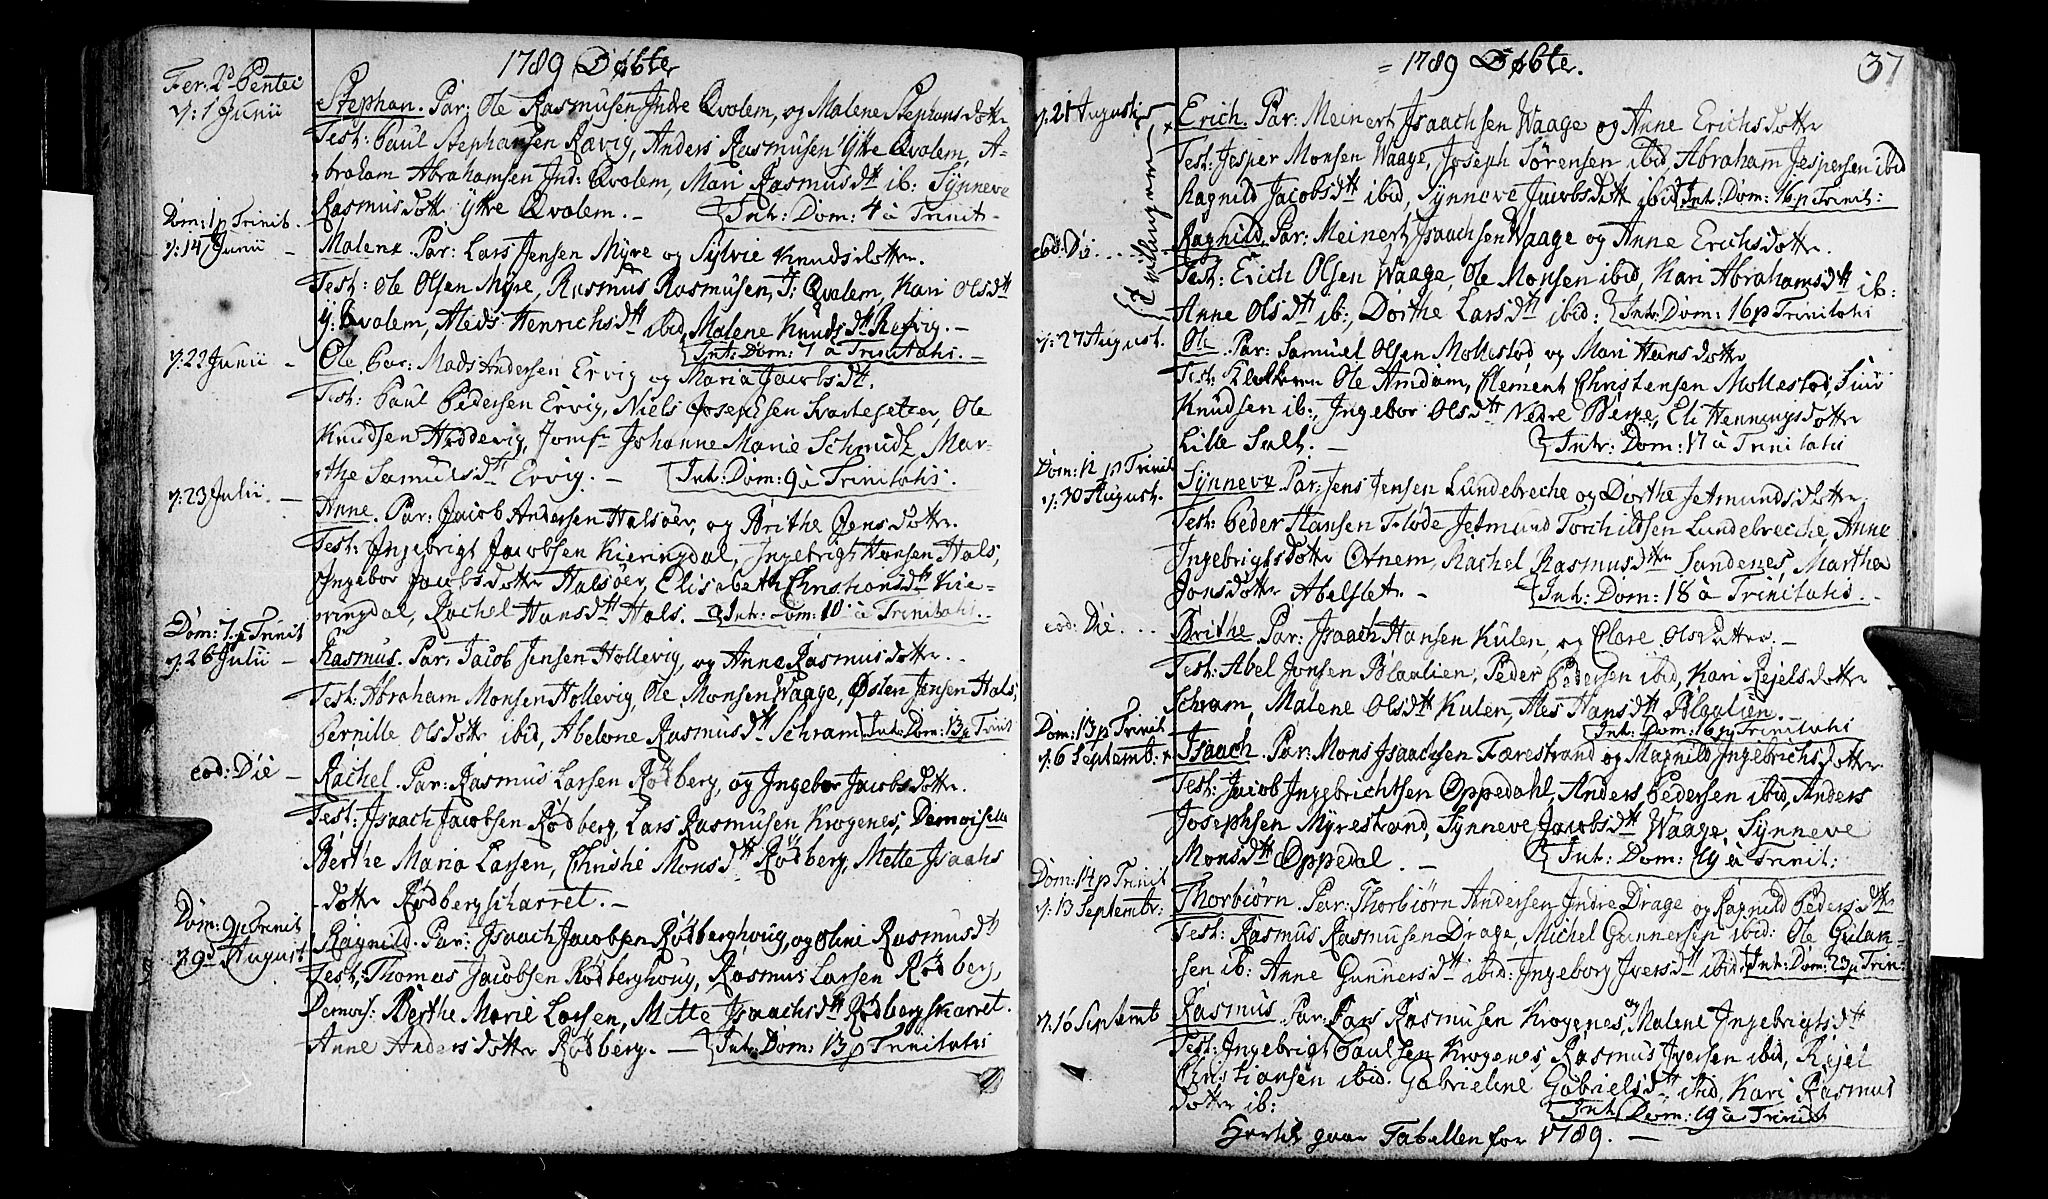 1789 Døbte
Fer: 2d Pentec
d: 1 Junii
Stephan. Par: Ole Rasmusen Indre Qvalem, og Malene Stephansdotter
Test: Paul Stephansen Ravig, Anders Rasmusen Ytre Qvalem, A-
braham Abrahamsen Ind: Qvalem, Mari Rasmusdtt ib: Synneve
Rasmusdotter Ytre Qvalem. - Int: Dom: 4 a Trinit -
Dom: 1 p Trinit.
d: 14 Junii -
Malene Par: Lars Jensen Myre og Sylvie Knudsdotter.
Test: Ole Olsen Myre, Rasmus Rasmusen, I: Qvalem, Kari Olsdtt
Y: Qvalem, Aleds Henrichsdtt ibid, Malene Knudsdtt Refvig. -
Int: Dom: 7 a Trinitatis. -
d: 22 Junii -
Ole Par: Mads Andersen Ervig og Maria Jacobsdtt.
Test: Paul Pedersen Ervig, Niels Josephsen Svartesetter, Ole
Knudsen Haddevig, Jomfr Johanne Marie Schmidt, Mar-
the Samuelsdtt Ervig. - Int: Dom: 9 a Trinitatis.
d: 23 Julii. -
Anne. Par: Jacob Andersen Halsøer, og Brithe Jensdotter.
Test: Ingebrigt Jacobsen Kieringdal, Ingebrigt Hansen Hals,
Ingebor Jacobsdotter Halsøer, Elisabeth Christiansdtt Kie-
ringdal, Rachel Hansdtt Hals. - Int: Dom: 10 a Trinitatis.
Dom: 7 p Trinit
d: 26 Julii -
Rasmus. Par: Jacob Jensen Hollevig, og Anne Rasmusdotter.
Test: Abraham Monsen Hollevig, Ole Monsen Waage, Østen Jensen Hals,
Pernille Olsdotter ibid, Abelone Rasmusdtt Schram Int: Dom: 13 p Trinit
eod: Die -
Rachel. Par: Rasmus Larsen Rødberg, og Ingebor Jacobsdotter.
Test: Isaach Jacobsen Rødberg, Lars Rasmusen Krogenes, Demoiselle
Berthe Maria Larsen, Christi Monsdtt Rødberg, Mette Isaachs
dotter Rødbergscharret. -
Dom: 9 p Trinit
d: 9d August
Ragnild. Par: Isaach Jacobsen Rødberghoug, og Olini Rasmusdtt
Test: Thomas Jacobsen Rødberghoug, Rasmus Larsen Rødberg,
Demois: Berthe Marie Larsen, Mette Isaachsdtt Rødbergskarret.
Anne Andersdotter Rødberg. - Int: Dom: 13 p Trinitatis
= 1789 Døbte.
37
d: 21 Augusti
Tvillinger
Erich. Par: Meinert Isaachsen Waage og Anne Erichsdotter
Test: Jesper Monsen Waage, Joseph Sørensen ibid, Abraham Jespersen ibid
Ragnild Jacobsdtt ibid, Synneve Jacobsdott ibid Int: Dom: 16 p Trinit:
eod: Die ....
Ragnild. Par: Meinert Isaachsen Waage og Anne Erichsdotter.
Test: Erich Olsen Waage, Ole Monsen ibid, Kari Abrahamsdtt ib:
Anne Olsdtt ib:, Dorthe Larsdtt ibid: Int: Dom: 16 p Trinitatis
d: 27 August.
Ole Par: Samuel Olsen Mollestød og Mari Hansdotter
Test: Klokkeren Ole Amdam, Clement Christensen Mollestød, Siur
Knudsen ib:, Ingebor Olsdtt Nedre Berge, Eli Henningsdotter
Lille Salt: - Int: Dom: 17 a Trinitatis
Dom: 12 p Trinit
d: 30 August.
Synneve Par: Jens Jensen Lundebreche og Dorthe Jetmundsdotter.
Test: Peder Hansen Fløde, Jetmund Torchildsen Lundebreche, Anne
Ingebrigtsdotter Ørnem, Rachel Rasmusdtter Sandenes, Marthe
Jonsdotter Abelset. - Int: Dom: 18 a Trinitatis. -
eod: Die ....
Brithe Par: Isaach Hansen Kulen, og Clare Olsdotter. -
Test: Abel Jonsen Blaalien, Peder Pedersen ibid, Kari Rejelsdotter
Schram, Malene Olsdtt Kulen, Ales Hansdtt Blaalien.
Int: Dom: 16 p Trinitatis
Dom: 13 p Trinit
d: 6 Septembr:
Isaach. Par: Mons Isaachsen Færestrand og Magnild Ingebrichsdotter
Test: Jacob Ingebrichtsen Oppedahl, Anders Pedersen ibid, Anders
Josephsen Myrestrand, Synneve Jacobsdtt Waage, Synneve
Monsdtt Oppedal. - Int: Dom: 19 a Trinit:
Dom: 14 p Trinit
d: 13 Septembr:
Thorbiørn. Par: Thorbiørn Andersen Indre Drage og Ragnild Pedersdtt
Test: Rasmus Rasmusen Drage, Michel Gunnersen ibid: Ole Gulam-
sen ib: Anne Gunnersdtt ibid: Ingeborg Iversdtt ibid Int: Dom: 23 p Trin:
d: 16 Septemt
Rasmus Par: Lars Rasmusen Krogenes, og Malene Ingebrigtsdtt
Test: Ingebrigt Paulsen Krogenes, Rasmus Iversen ibid, Rejel
Christiansen ibid. Gabrieline Gabrielsdtt ibid, Kari Rasmus
dotter ib: Int: Dom: 19 a Trinit
Hertil gaar Tabellen for 1789. -